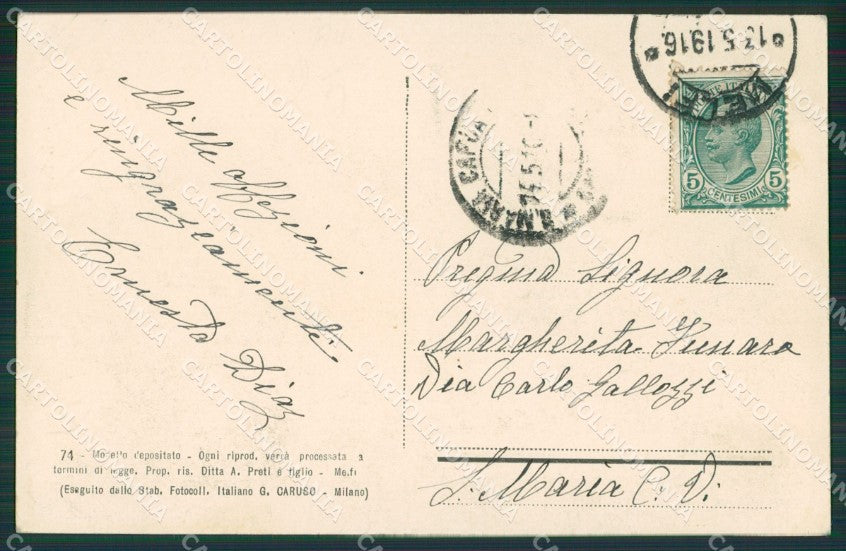 Mille affezioni
e ringraziamenti.
Ernesta Diaz
74 - Modello depositato - Ogni riprod. verrà processata a
termini di legge. Prop. ris. Ditta A. Preti e figlio - Melfi
(Eseguito dallo Stab. Fotocoll. Italiano G. CARUSO - Milano)
* 13.5.1916. *
MELFI
5 CENTESIMI 5
S. MARIA CAPUA
14.5.16
Pregma Signora
Margherita Funaro
Via Carlo Gallozzi
S. Maria C. V.
CARTOLINOMANIA